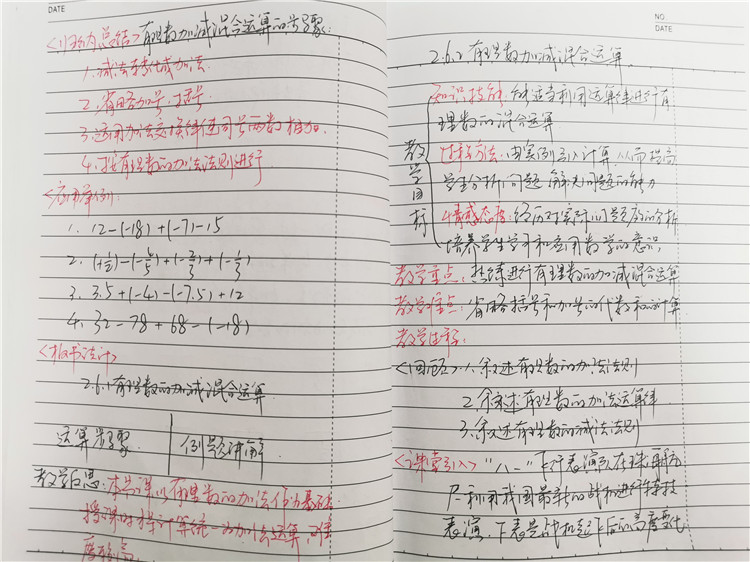 DATE
<归纳总结>有理数加减混合运算的步骤:
1.减法转化成加法
2.省略加号、括号
3.运用加法交换律使同号两数相加
4.按有理数的加法法则进行
<应用举例>
1. 12-(-18)+(-7)-15
2. (+1/2)-(-6/5)+(-2/3)+(-1/3)
3. 3.5+(-4)-(-7.5)+12
4. 32-78+68-(-18)
<板书设计>
2.6.1有理数的加减混合运算
运算步骤 例题讲解
教学反思:本节课以有理数的加法作为基础
授课时将计算统一为加法运算,难
度较高
NO.
DATE
2.6.2有理数加减混合运算
教学目标
知识技能:能适当利用运算律进行有
理数的混合运算
过程与方法:由实例引入计算,从而提高
学生分析问题、解决问题的能力
情感态度:经历对实际问题的分析
培养学生学习和应用数学的意识
教学重点:熟练进行有理数的加减混合运算
教学难点:省略括号和加号的代数和的计算
教学过程:
<回顾>1.叙述有理数的加法法则
2.叙述有理数的加法运算律
3.叙述有理数的减法法则
<课堂引入>"八一"飞行表演队在珠
利用我国最新的战机进行特技
表演,下表是战机起飞后的高度变化